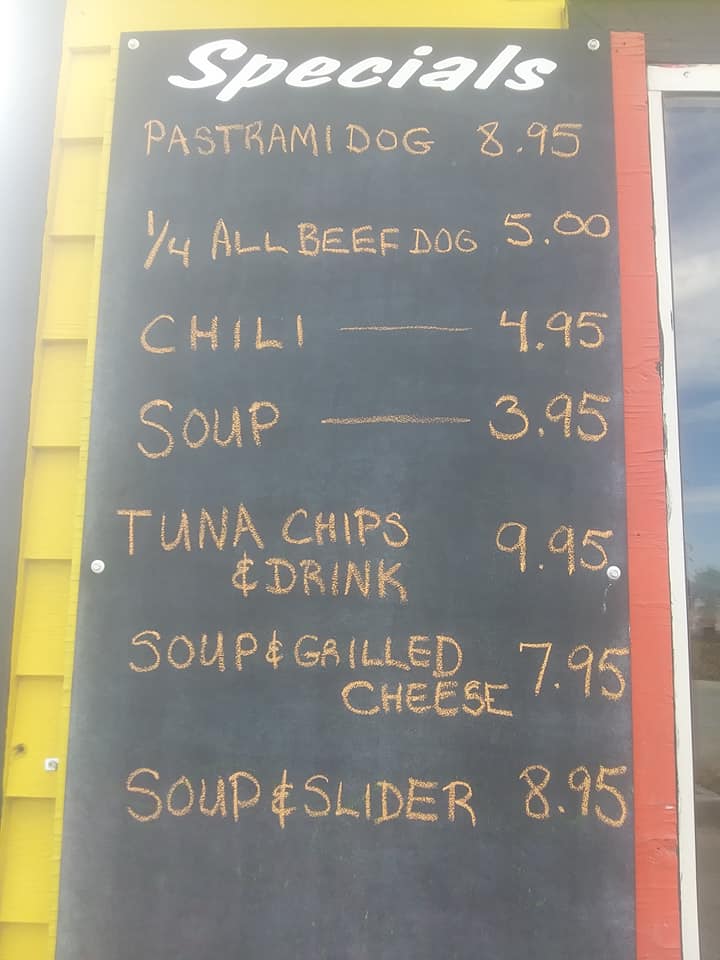 Specials
PASTRAMI DOG 8.95
1/4 ALL BEEF DOG 5.00
CHILI — 4.95
SOUP — 3.95
TUNA CHIPS 9.95
& DRINK
SOUP & GRILLED 7.95
CHEESE
SOUP & SLIDER 8.95